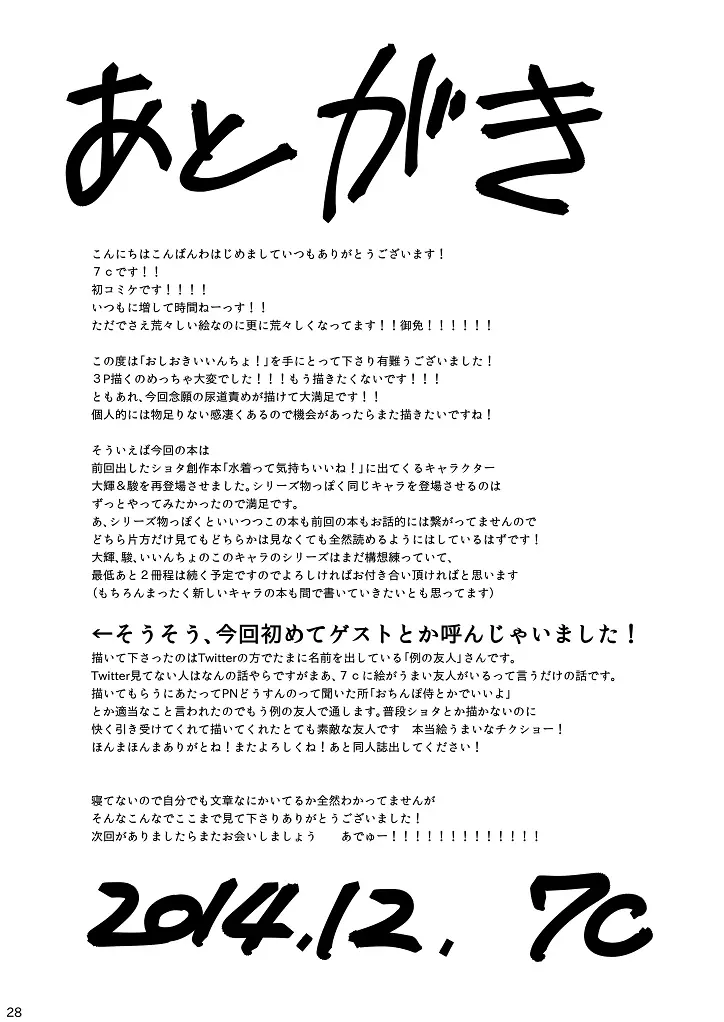 あとがき
こんにちはこんばんわはじめましていつもありがとうございます！
７ｃです！！
初コミケです！！！！
いつもに増して時間ねーっす！！
ただでさえ荒々しい絵なのに更に荒々しくなってます！！御免！！！！！！
この度は「おしおきいいんちょ！」を手にとって下さり有難うございました！
３Ｐ描くのめっちゃ大変でした！！！もう描きたくないです！！！
ともあれ、今回念願の尿道責めが描けて大満足です！！
個人的には物足りない感凄くあるので機会があったらまた描きたいですね！
そういえば今回の本は
前回出したショタ創作本「水着って気持ちいいね！」に出てくるキャラクター
大輝＆駿を再登場させました。シリーズ物っぽく同じキャラを登場させるのは
ずっとやってみたかったので満足です。
あ、シリーズ物っぽくといいつつこの本も前回の本もお話的には繋がってませんので
どちら片方だけ見てもどちらかは見なくても全然読めるようにはしているはずです！
大輝、駿、いいんちょのこのキャラのシリーズはまだ構想練っていて、
最低あと２冊程は続く予定ですのでよろしければお付き合い頂ければと思います
（もちろんまったく新しいキャラの本も間で書いていきたいとも思ってます）
←そうそう、今回初めてゲストとか呼んじゃいました！
描いて下さったのはTwitterの方でたまに名前を出している「例の友人」さんです。
Twitter見てない人はなんの話やらですがまあ、７ｃに絵がうまい友人がいるって言うだけの話です。
描いてもらうにあたってPNどうすんのって聞いた所「おちんぽ侍とかでいいよ」
とか適当なこと言われたのでもう例の友人で通します。普段ショタとか描かないのに
快く引き受けてくれて描いてくれたとても素敵な友人です　本当絵うまいなチクショー！
ほんまほんまありがとね！またよろしくね！あと同人誌出してください！
寝てないので自分でも文章なにかいてるか全然わかってませんが
そんなこんなでここまで見て下さりありがとうございました！
次回がありましたらまたお会いしましょう　　あでゅー！！！！！！！！！！！！！
2014.12. 7c
28